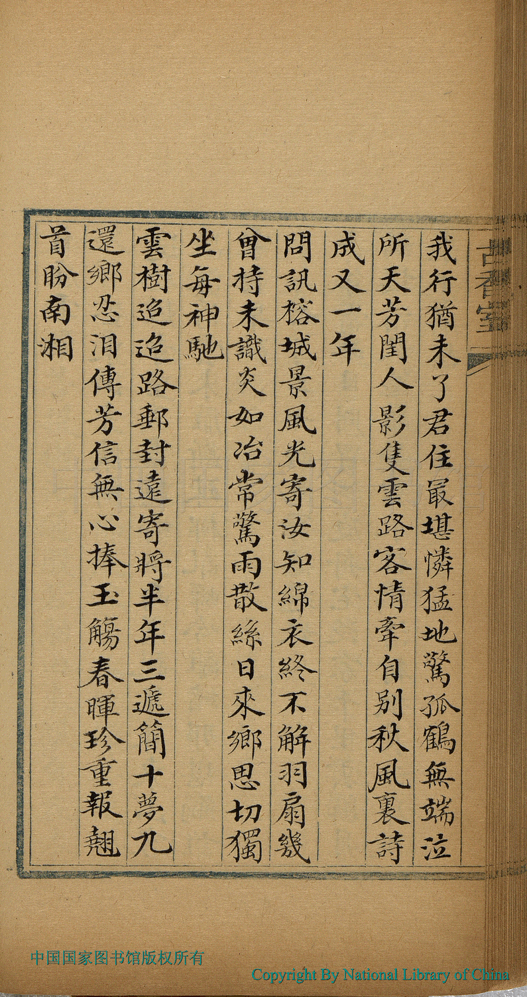 古香室
我行猶未了君住最堪憐猛地驚孤鶴無端泣
所天芳閨人影隻雲路客情牽自别秋風裏詩
成又一年
問訊榕城景風光寄汝知綿衣終不解羽扇幾
曾持未識炎如冶常驚雨散絲日來鄉思切獨
坐每神馳
雲樹迢迢路郵封遠寄將半年三遞簡十夢九
還鄉忍淚傳芳信無心捧玉觴春暉珍重報翹
首盼南湘
中国国家图书馆版权所有
Copyright By National Library of China